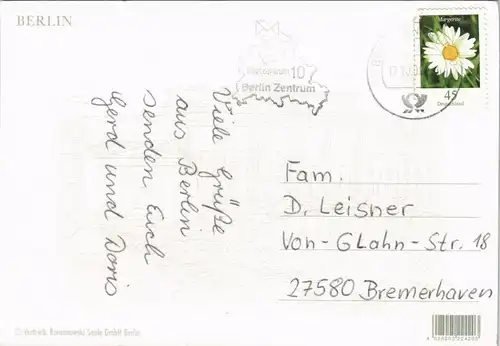 BERLIN
Margerite
45
Deutschland
10
Berlin Zentrum
Viele Grüße
aus Berlin
senden Euch
Gerd und Doris
Fam.
D. Leisner
Von-Glahn-Str. 18
27580 Bremerhaven
GmbH Berlin